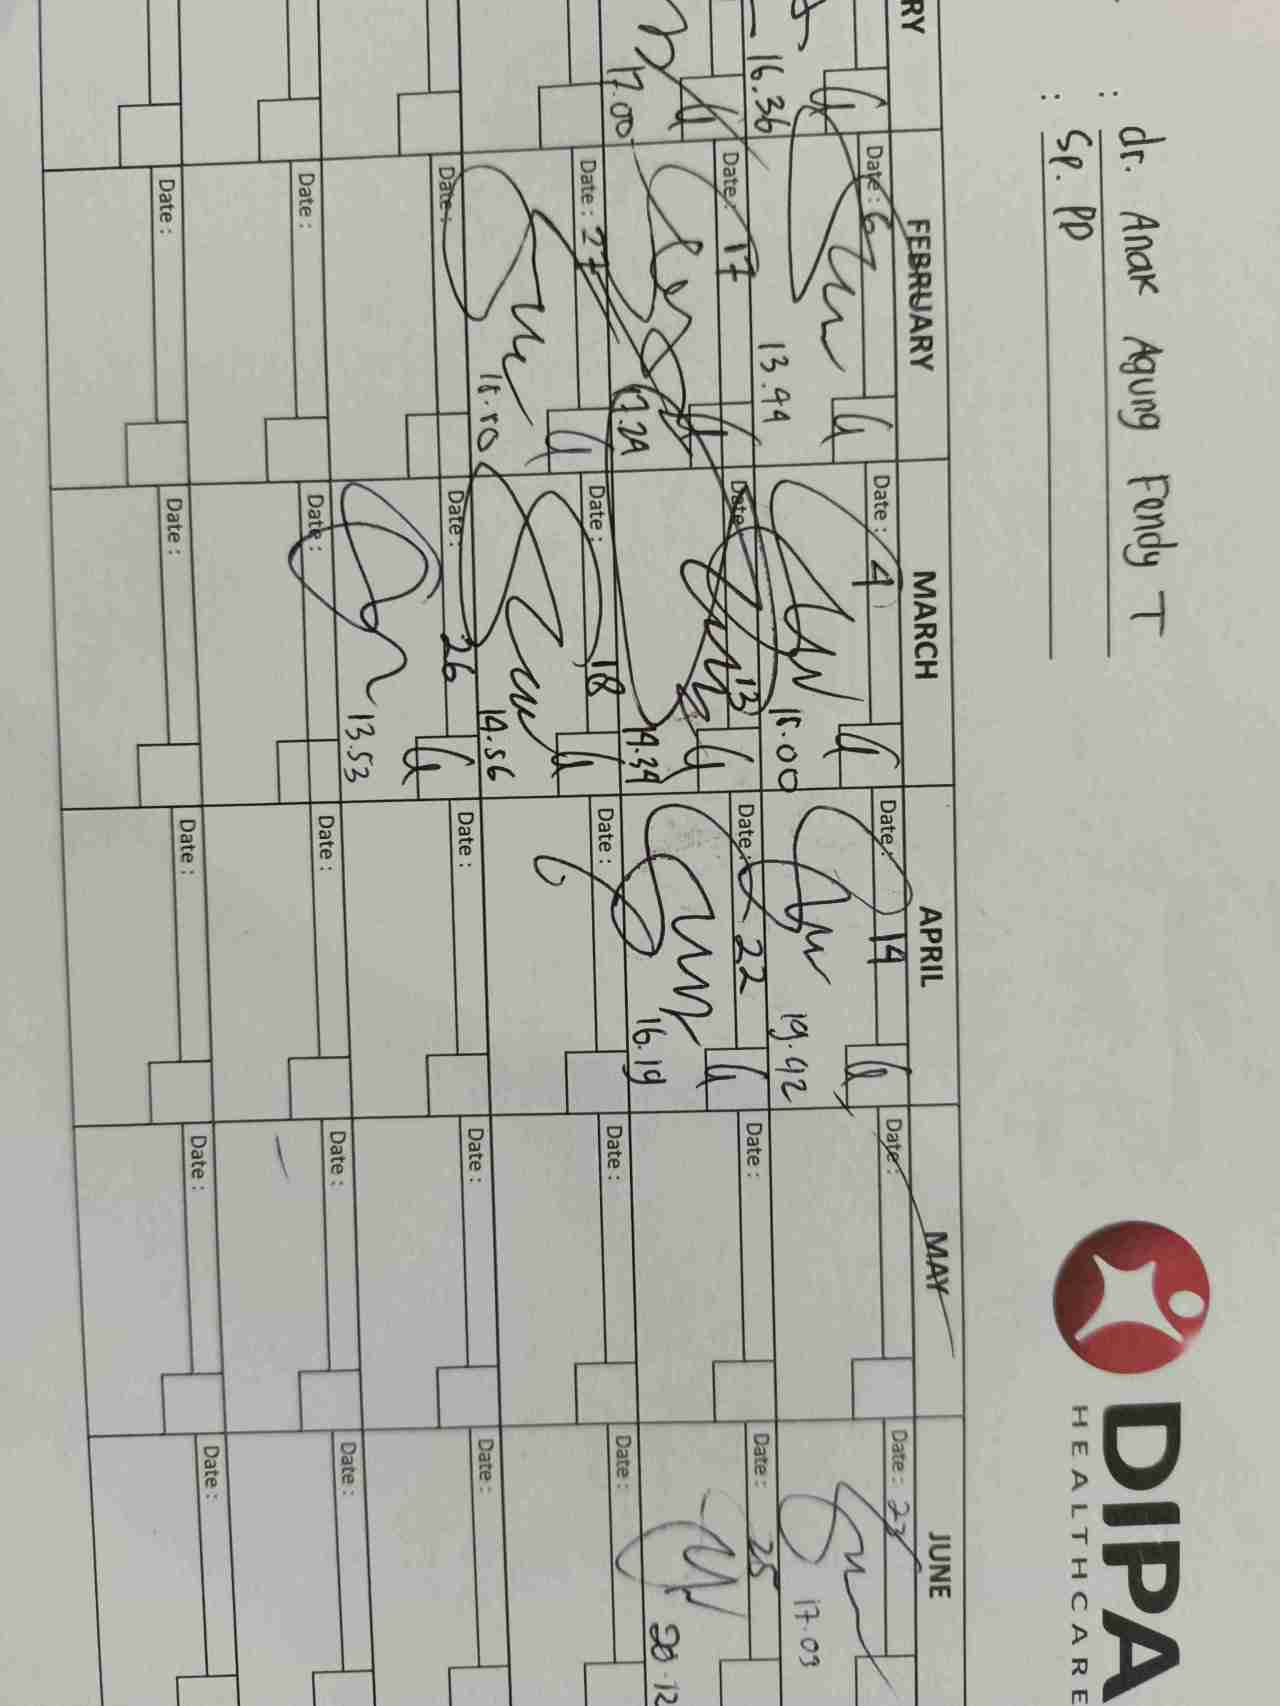 : dr. Anak Agung Fendy T
: Sp. PD
DIPA
HEALTHCARE
RY FEBRUARY MARCH APRIL MAY JUNE
Date : 6 Date : 4 Date : 14 Date : Date : 23
16.36 13.44 18.00 19.42 17.09
Date : 17 Date : 13 Date : 22 Date : Date : 25
17.00 17.24 14.34 16.19 20.12
Date : 27 Date : 18 Date : Date : Date :
18.50 14.56
Date : Date : 26 Date : Date : Date :
13.53
Date : Date : Date : Date : Date :
Date : Date : Date : Date : Date :